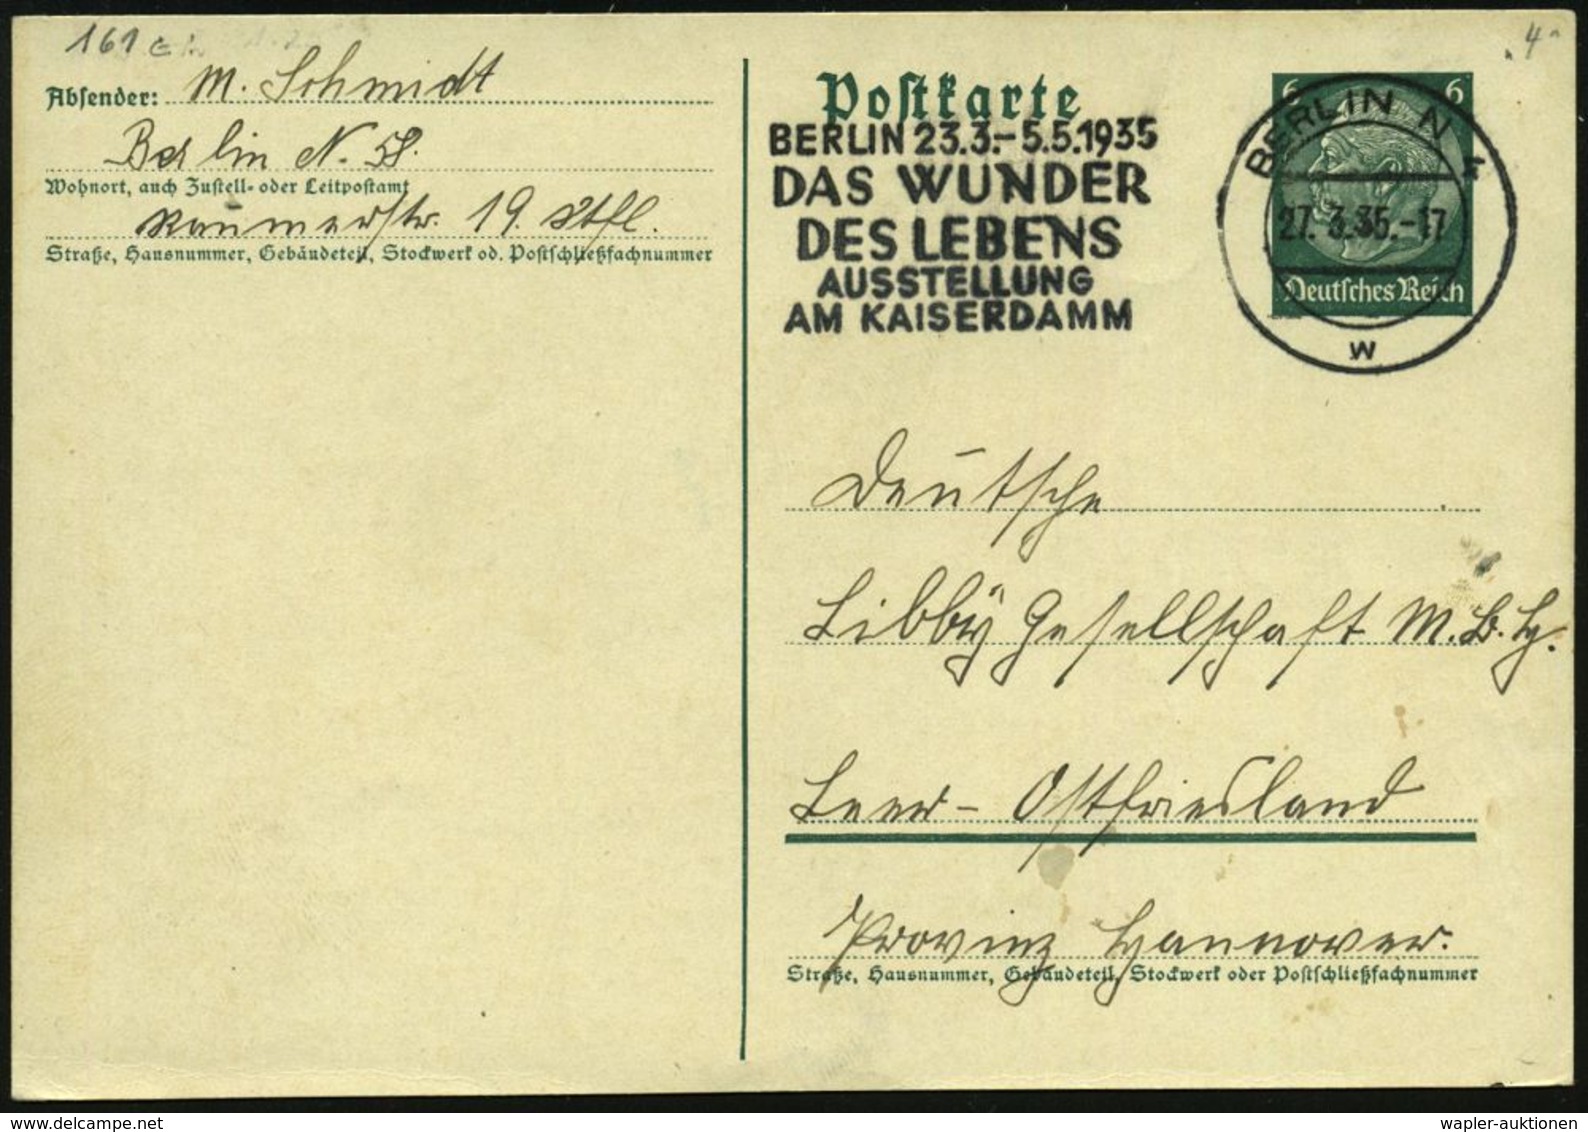 161
M. Schmidt
Absender:
Berlin N. 58.
Wohnort, auch Zustell- oder Leitpostamt
Raumerstr. 19. Stfl.
Straße, Hausnummer, Gebäudeteil, Stockwerk od. Postschließfachnummer
"4"
Postkarte
BERLIN 23.3.-5.5.1935
DAS WUNDER
DES LEBENS
AUSSTELLUNG
AM KAISERDAMM
6 6
Deutsches Reich
BERLIN N 4
27.3.35.-17
w
Deutsche
Libby Gesellschaft M.B.H.
Leer - Ostfriesland
Provinz Hannover.
Straße, Hausnummer, Gebäudeteil, Stockwerk oder Postschließfachnummer
wapler-auktionen